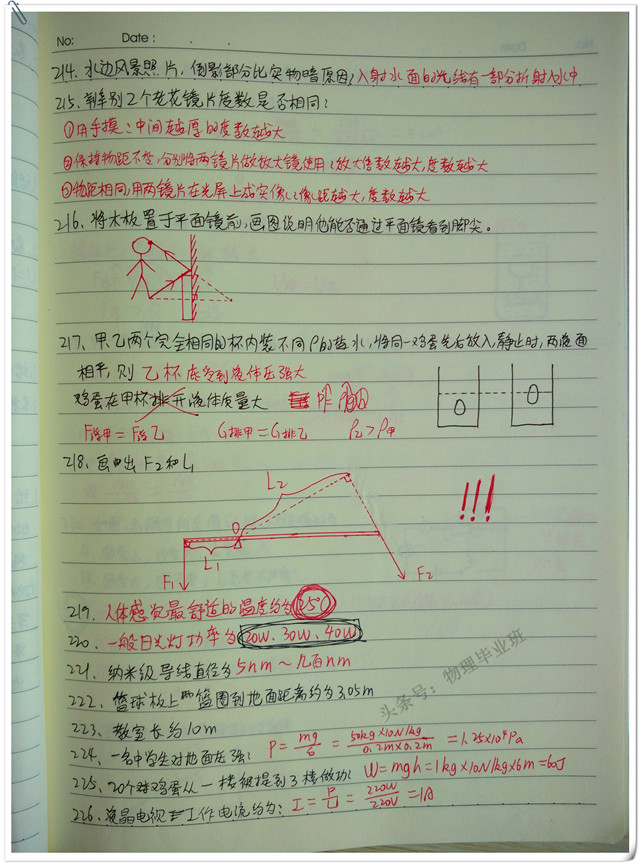 No:
Date:
214. 水边风景照片,倒影部分比实物暗原因,入射水面的光线有一部分折射入水中
215. 判别2个老花镜片度数是否相同:
①用手摸:中间越厚的度数越大
②保持物距不变,分别将两镜片做放大镜使用:放大倍数越大,度数越大
③物距相同,用两镜片在光屏上成实像:像距越大,度数越大
216、将木板置于平面镜前,画图说明他能否通过平面镜看到脚尖。
217、甲乙两个完全相同的杯内装不同ρ的盐水,将同一鸡蛋先后放入,静止时,两液面
相平,则 乙杯底受到液体压强大
鸡蛋在甲杯排开液体质量大
F浮甲=F浮乙 G排甲=G排乙 ρ乙>ρ甲
218、画出F2和L1
L2
O
L1
F1
F2
219、人体感觉最舒适的温度约为25℃
220、一般日光灯功率为20W、30W、40W
221、纳米级导线直径为5nm~几百nm
222、篮球板上篮圈到地面距离约为3.05m
223、教室长约10m
224、一名中学生对地面压强: P=mg/S=50kg×10N/kg/0.2m×0.2m=1.25×10⁴Pa
225、20个鸡蛋从一楼被提到3楼做功: W=mgh=1kg×10N/kg×6m=60J
226、液晶电视工作电流约为: I=P/U=220W/220V=1A
头条号:物理毕业班